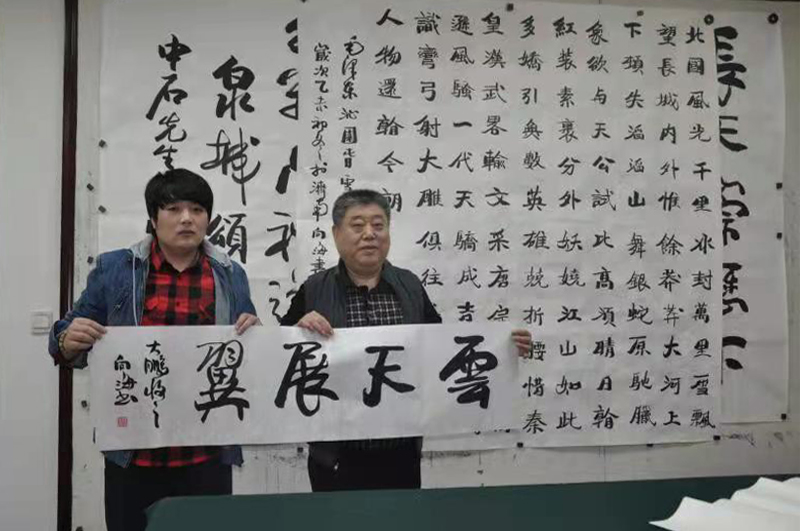 北國風光千里冰封萬里雪飄
望長城内外惟餘莽莽大河上
下頓失滔滔山舞銀蛇原馳臘
象欲与天公試比高須晴日看
紅装素裹分外妖嬈江山如此
多嬌引無數英雄競折腰惜秦
皇漢武畧輸文采唐宗
遜風騷一代天驕成吉
識彎弓射大雕俱往
人物還看今朝
毛澤東沁園春雪
歲次乙未初冬於濟南向海書
泉城頌
中石先生
雲天展翼
大鵬
向海書